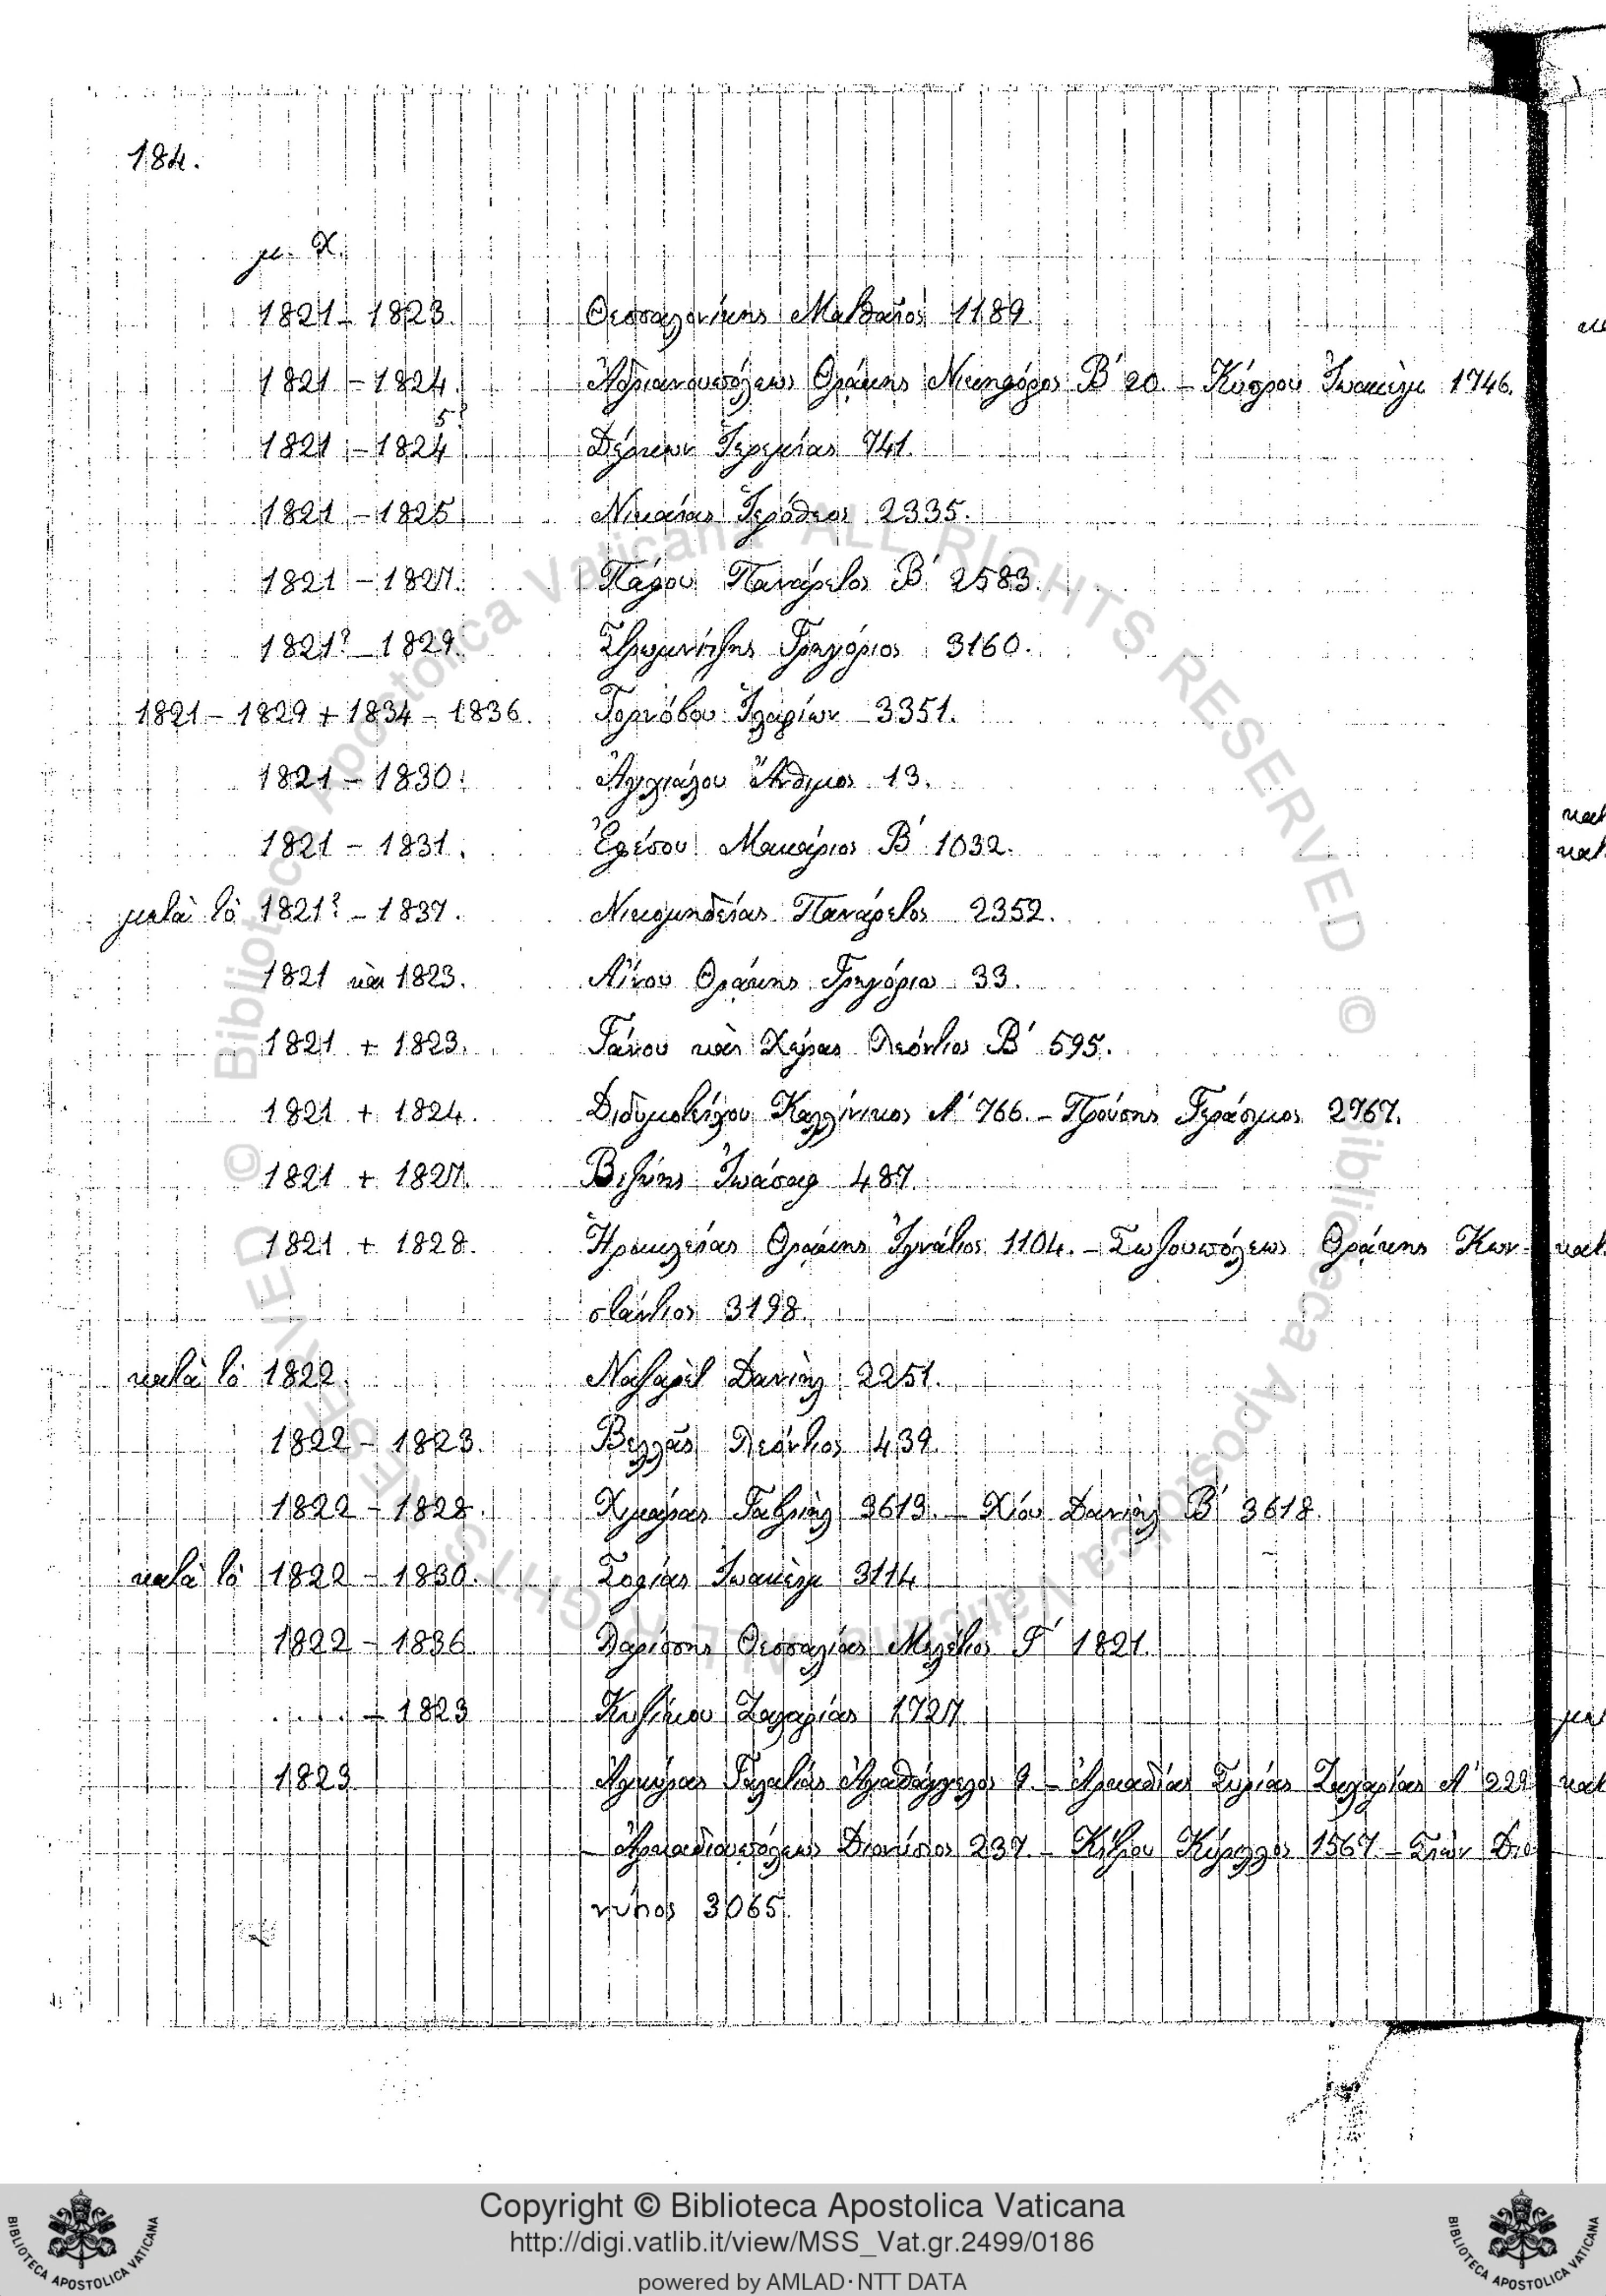 184.
μ. Χ.
1821 – 1823. Θεσσαλονίκης Ματθαῖος 1189.
1821 – 1824. Ἀδριανουπόλεως Θρᾴκης Νικηφόρος Β΄ 20. – Κύπρου Ἰωακεὶμ 1746.
5?
1821 – 1824 Δέρκων Ἱερεμίας 741.
1821 – 1825 Νικαίας Ἱερόθεος 2335.
1821 – 1827. Πάφου Πανάρετος Β΄ 2583.
1821? – 1829. Στρωμνίτζης Γρηγόριος 3160.
1821 – 1829 + 1834 – 1836. Τορνόβου Ἱλαρίων 3351.
1821 – 1830. Ἀγχιάλου Ἄνθιμος 13.
1821 – 1831. Ἐφέσου Μακάριος Β΄ 1032.
μετὰ τὸ 1821? – 1837. Νικομηδείας Πανάρετος 2352.
1821 καὶ 1823. Αἴνου Θρᾴκης Γρηγόριος 33.
1821 + 1823. Γάνου καὶ Χώρας Λεόντιος Β΄ 595.
1821 + 1824. Διδυμοτείχου Καλλίνικος Α΄ 766. – Προύσης Γεράσιμος 2767.
1821 + 1827. Βιζύης Ἰωάσαφ 487.
1821 + 1828. Ἡρακλείας Θρᾴκης Ἰγνάτιος 1104. – Σωζουπόλεως Θρᾴκης Κων-
στάντιος 3198.
κατὰ τὸ 1822. Ναζαρὲτ Δανιὴλ 2251.
1822 – 1823. Βελλᾶς Λεόντιος 439.
1822 – 1828. Χιμάρας Γαβριὴλ 3613. – Χίου Δανιὴλ Β΄ 3618.
κατὰ τὸ 1822 – 1830. Σοφίας Ἰωακεὶμ 3114
1822 – 1836. Λαρίσσης Θεσσαλίας Μελέτιος 1821.
..... – 1823 Κυζίκου Ζαχαρίας 1727
1823. Ἀγκύρας Γαλατίας Ἀγαθάγγελος 9. – Ἀρκαδίας Συρίας Ζαχαρίας Α΄ 229
– Ἀρκαδιουπόλεως Διονύσιος 237. – Κύριλλος 1567. – Διο
νύσιος 3065.
Copyright © Biblioteca Apostolica Vaticana
http://digi.vatlib.it/view/MSS_Vat.gr.2499/0186
powered by AMLAD·NTT DATA
BIBLIOTECA APOSTOLICA VATICANA
BIBLIOTECA APOSTOLICA VATICANA